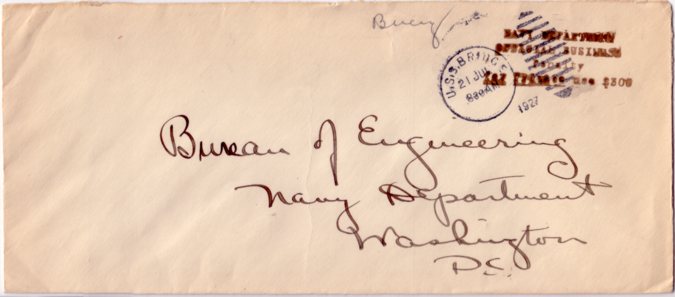 NAVY DEPARTMENT
OFFICIAL BUSINESS
Penalty
for Private use $300
U.S.S. BRIDGE
21 JUL
8 30 AM
1927
Bureau of Engineering
Navy Department
Washington
D.C.